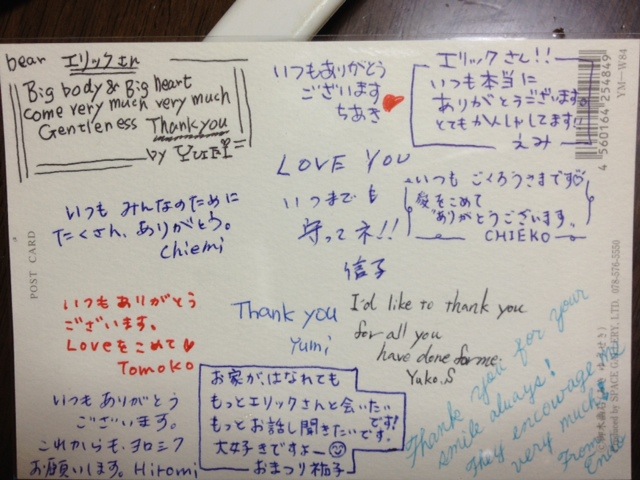 bear エリックさん
Big body & Big heart
come very much very much
Gentleness Thank you
by
いつもありがとう
ございます
ちあき
エリックさん!!
いつも本当に
ありがとうございます。
とてもかんしゃしてます!!
えみ
YM-W84
4 560164 254849
LOVE YOU
いつまでも
守ってネ!!
信子
いつも ごくろうさまです
愛をこめて
ありがとうございます。
CHIEKO
いつも みんなのために
たくさん、ありがとう。
Chiemi
POST CARD
いつも ありがとう
ございます。
Loveをこめて
Tomoko
Thank you
Yumi
I'd like to thank you
for all you
have done for me.
Yuko.S
いつも ありがとう
ございます。
これからも、ヨロシク
お願いします。Hiromi
お家が、はなれても
もっとエリックさんと会いたい
です!
もっとお話し聞きたいです。
大好きですよー
おまつり祐子
Thank you for your
smile always!
They encourage me
very much
From
Endo
Produced by SPACE GALLERY, LTD. 078-576-5550